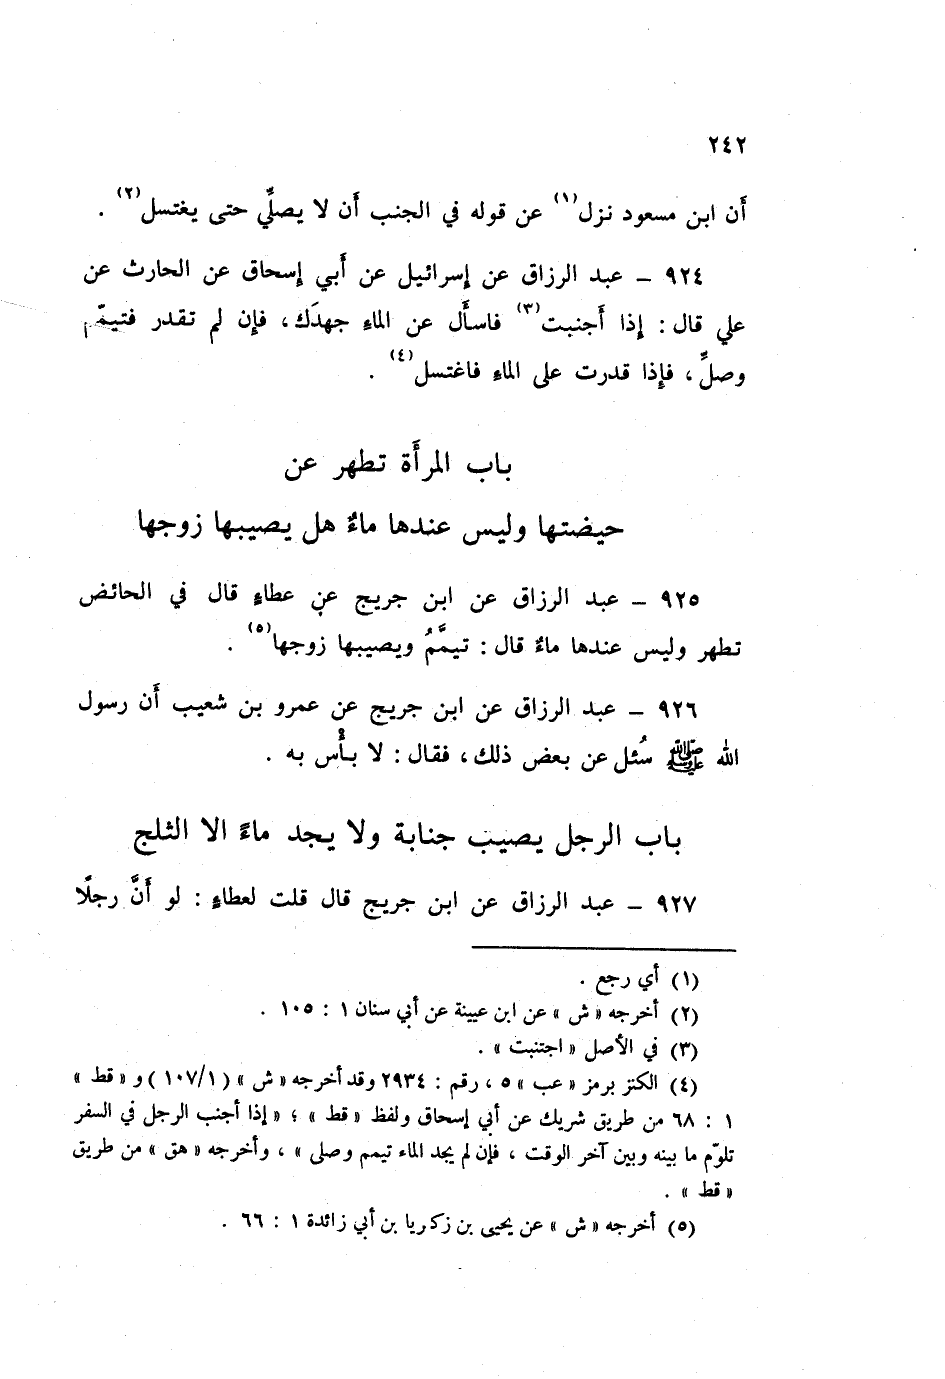 ٢٤٢
أَن ابن مسعود نزل(١) عن قوله في الجنب أَن لا يصلِّي حتى يغتسل(٢) .
٩٢٤ – عبد الرزاق عن إسرائيل عن أَبي إسحاق عن الحارث عن
علي قال : إذا أَجنبت(٣) فاسأَل عن الماءِ جهدَك، فإن لم تقدر فتيمّم
وصلِّ، فإذا قدرت على الماءِ فاغتسل(٤) .
باب المرأَة تطهر عن
حيضتها وليس عندها ماءٌ هل يصيبها زوجها
٩٢٥ – عبد الرزاق عن ابن جريج عن عطاءٍ قال في الحائض
تطهر وليس عندها ماءٌ قال : تيمَّمُ ويصيبها زوجها(٥) .
٩٢٦ – عبد الرزاق عن ابن جريج عن عمرو بن شعيب أَن رسول
الله ﷺ سُئل عن بعض ذلك، فقال : لا بأْس به .
باب الرجل يصيب جنابة ولا يجد ماءً الا الثلج
٩٢٧ – عبد الرزاق عن ابن جريج قال قلت لعطاءٍ : لو أَنَّ رجلًا
(١) أي رجع .
(٢) أخرجه « ش » عن ابن عيينة عن أبي سنان ١ : ١٠٥ .
(٣) في الأصل « اجتنبت » .
(٤) الكنز برمز « عب » ٥ ، رقم : ٢٩٣٤ وقد أخرجه « ش » (١٠٧/١) و « قط »
١ : ٦٨ من طريق شريك عن أبي إسحاق ولفظ « قط » ؛ « إذا أجنب الرجل في السفر
تلوّم ما بينه وبين آخر الوقت ، فإن لم يجد الماء تيمم وصلى » ، وأخرجه « هق » من طريق
« قط » .
(٥) أخرجه « ش » عن يحيى بن زكريا بن أبي زائدة ١ : ٦٦ .